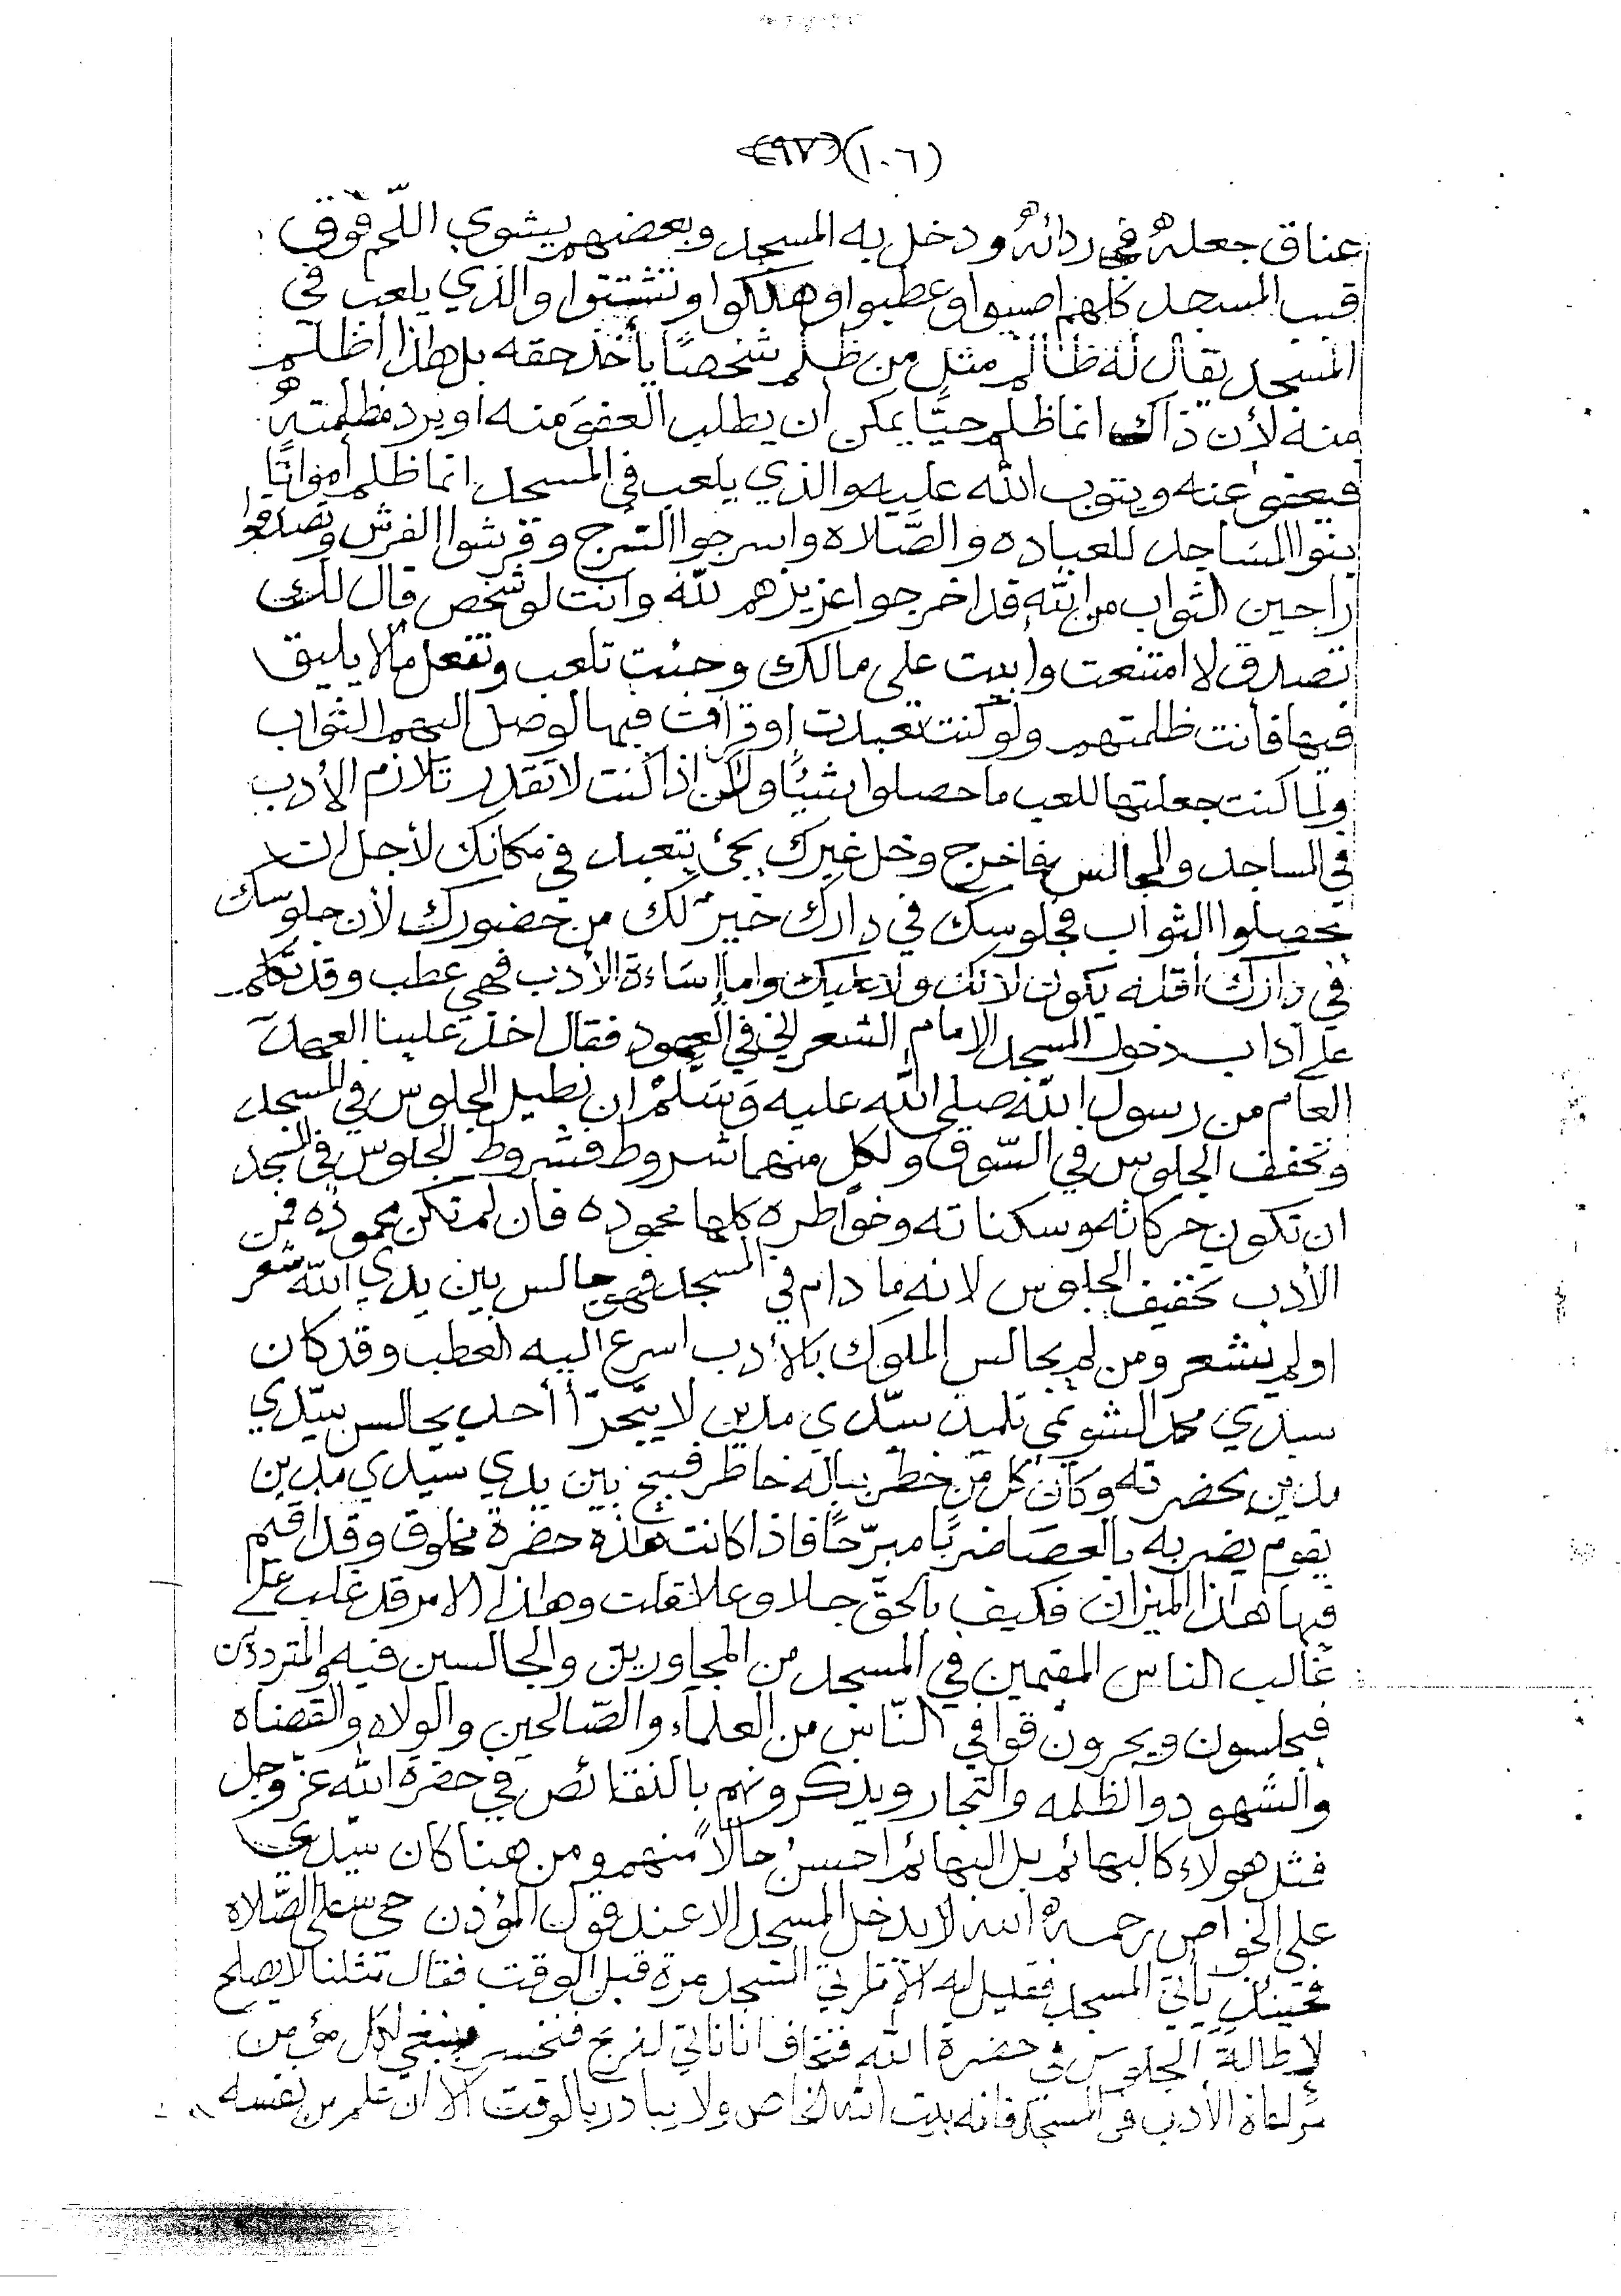 (١٠٦) (٩٧)
عناق جعلهُ في ردائهُ ودخل به المسجد وبعضهم يشوي اللّحم فوق
قبب المسجد كلهم اصيبوا وعطبوا وهلكوا وتشتتوا والذي يلعب في
المسجد يقال له ظالم مثل من ظلم شخصًا يأخذ حقه بل هاذا أظلم
منه لأن ذاك انما ظلم حيًّا يمكن ان يطلب العفوَ منه او يرد مظلمتهُ
فيعفو عنه ويتوب الله عليه والذي يلعب في المسجد انما ظلم أمواتًا
بنوا المسَاجد للعباده والصَّلاه واسرجوا السّرج وفرشوا الفرش وتصدقوا
راجين الثواب من الله قد اخرجوا عزيزهم لله وانت لو شخص قال لك
تصدق لا امتنعت وابيت على مالك وجئت تلعب وتفعل مالا يليق
فيها فأنت ظلمتهم ولو كنت تعبدت او قرأت فيها لوصل اليهم الثواب
ولما كنت جعلتها للعب ما حصلوا شيئًا ولاكن اذا كنت لا تقدر تلازم الأدب
في المساجد والمجالس فاخرج وخل غيرك يجئ يتعبد في مكانك لأجل ان
يحصلوا الثواب فجلوسك في دارك خيرٌ لك من حضورك لأن جلوسك
في دارك أقله يكون لا لك ولا عليك واما إسَاءة الأدب فهي عطب وقد تكلم
على آداب دخول المسجد الإمام الشعراني في العهود فقال اخذ علينا العهد
العام من رسول الله صلى الله عليه وَسَلمْ ان نطيل الجلوس في المسجد
ونخفف الجلوس في السّوق ولكل منهما شروط فشروط الجلوس في المسجد
ان تكون حركاته وسكناته وخواطره كلها محموده فان لم تكن محموده فمن
الأدب تخفيف الجلوس لانه ما دام في المسجد فهو جالس بين يدي الله شعر
او لم يشعر ومن لم يجالس الملوك بالأدب اسرع اليه العطب وقد كان
سيدي محمد الشويمي تلميذ سيّدي مدين لا يتجرّأ أحد يجالس سيّدي
مدين بحضرته وكان كل من خطر بباله خاطر قبيح بين يدي سيدي مدين
يقوم يضربه بالعصَا ضربًا مبرّحًا فاذا كانت هاذه حضرة مخلوق وقد اقيم
فيها هاذا الميزان فكيف بالحقّ جلا وعلا قلت وهاذا الامر قد غلب على
غالب الناس المقيمين في المسجد من المجاورين والجالسين فيه والمترددين
فيجلسون ويجرون قوافي النّاس من العلماء والصّالحين والولاه والقضاه
والشهود والظلمه والتجار ويذكرونهم بالنقائص في حضرة الله عزّ وجل
فمثل هولاء كالبهائم بل البهائم احسنُ حالاً منهم ومن هنا كان سيّدي
علي الخواص رحمهُ الله لا يدخل المسجد الا عند قول المؤذن حي على الصّلاه
فحينئذ يأتي المسجد فقيل له الا تأتي المسجد مرة قبل الوقت فقال مثلنا لا يصلح
لإطالة الجلوس في حضرة الله فنخاف اننا نأتي لنربح فنخسر فينبغي لكل مؤمن
مراعاة الأدب في المسجد فانه بيت الله الخاص ولا يبادر بالوقت الا ان علم من نفسه